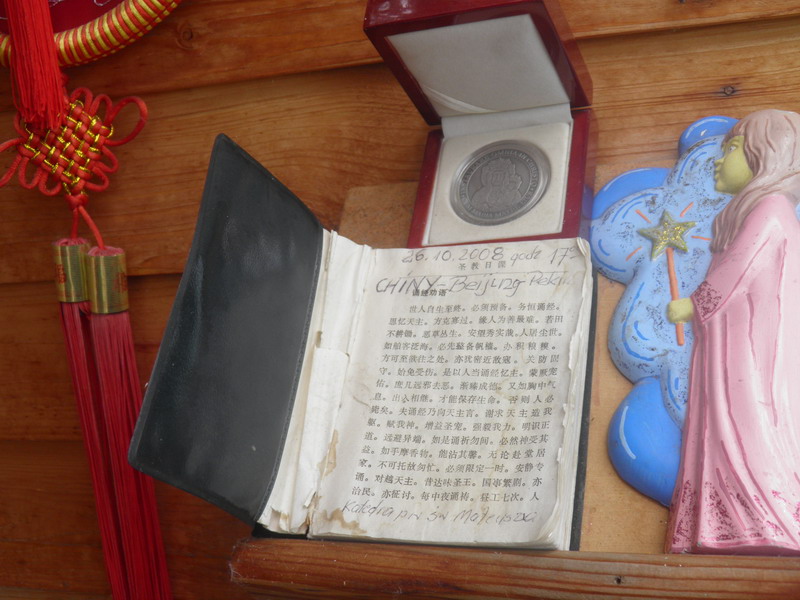 26.10.2008 godz 17
圣教日课
CHINY - Beijing Pekin
诵经劝语
世人自生至终。必须预备。务恒诵经。
思忆天主。方克寡过。缘人为善最难。若田
不耕锄。恶草丛生。安望秀实哉。人居尘世。
如船客泛海。必先整备帆樯。办积粮糗。
方可至前往之处。亦犹密近敌寇。关防固
守。始免受伤。是以人当诵经忆主。蒙厥宠
佑。庶几远邪去恶。渐臻成德。又如胸中气
息。出入相继。才能保存生命。否则人必
毙矣。夫诵经乃向天主言。谢求天主造我
躯。赋我神。增益圣宠。强毅我力。明识正
道。远避异端。如是诵祈勿间。必然神受其
益。如手摩香物。能沾其馨。无论赴堂居
家。不可托故匆忙。必须限定一时。安静专
诵。对越天主。昔达味圣王。国事繁剧。亦
治民。亦征讨。每中夜诵祷。轻工七次。人
Katedra pw św Mateusza